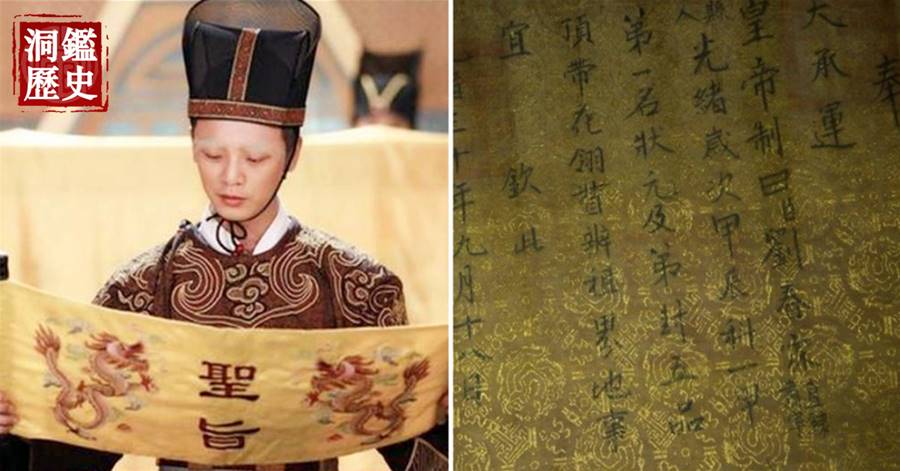 洞鑑
歷史
聖旨
奉
天承運
皇帝制曰劉春霖
縣人光緒歲次甲辰科一甲
第一名狀元及第封五品
頂帶花翎督辦
地事
宜 欽此
十年九月十八日